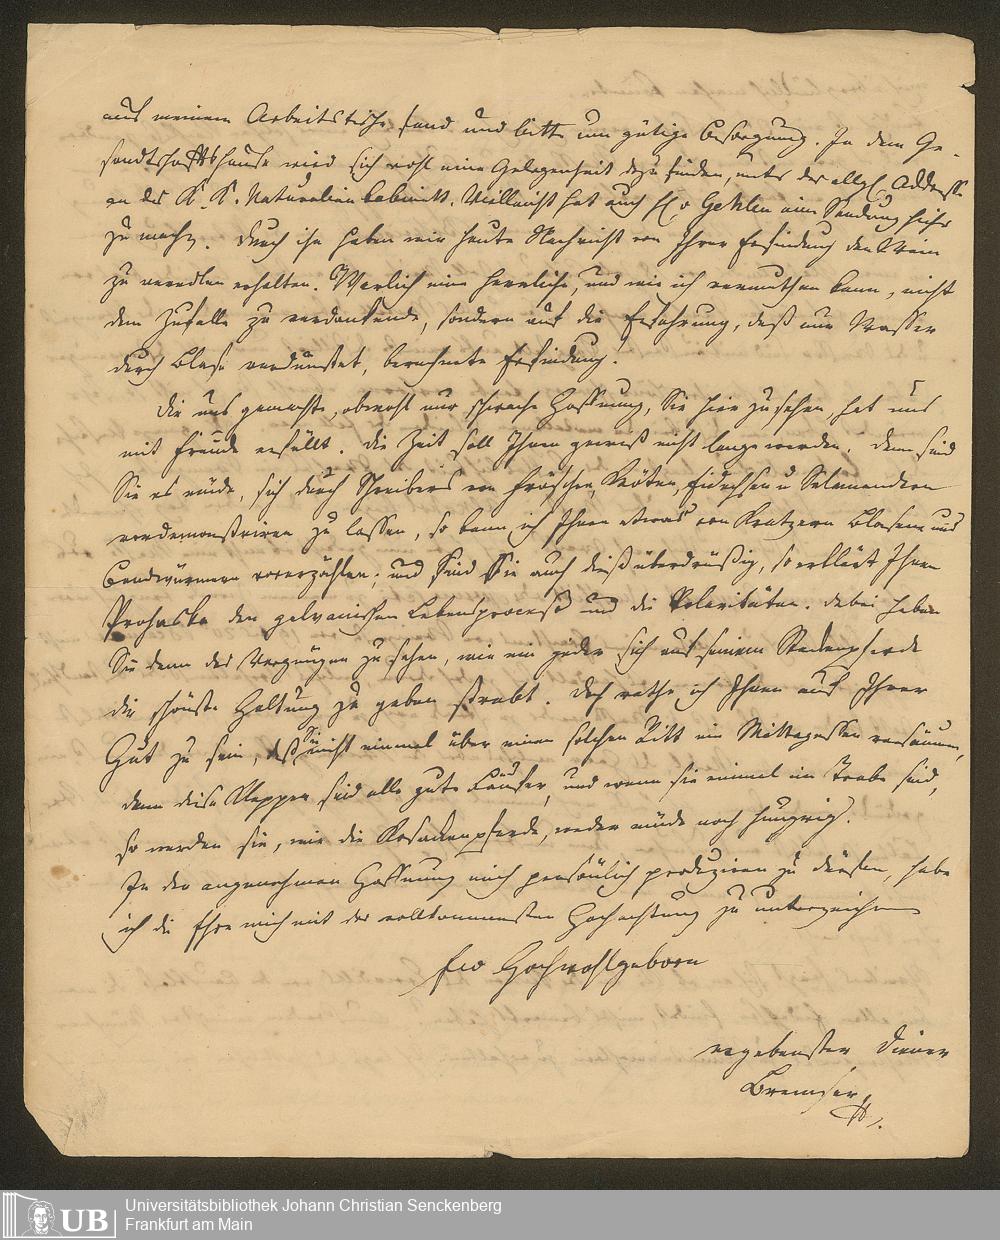 aus meinem Arbeitstische fand und bitte um gütige Besorgung. In dem Ge-
sandtschaftshause wird sich wohl eine Gelegenheit dazu finden, unter der allgl. Addresse
an das K. K. Naturalien Cabinett. Vielleicht hat auch H. v Gehlen eine Sendung hieher
zu machen. Durch ihn haben wir heute Nachricht von Ihrer Erfindung den Wein
zu veredlen erhalten. Warlich eine herrliche, und wie ich vermuthen kann, nicht
dem Zufalle zu verdankende, sondern auf die Erfahrung, daß nur Wasser
durch Blase verdünstet, beruhende Erfindung.
Die uns gemachte, obwohl nur schwache Hoffnung, Sie hier zu sehen, hat uns
mit Freude erfüllt. Die Zeit soll Ihnen gewiß nicht lange werden. Denn sind
Sie es müde, sich durch Schreibers von Fröschen, Kröten, Eidechsen u Salamandern
vordemonstriren zu lassen, so kann ich Ihnen etwas von Kratzern Blasen und
Bandwürmern vorerzählen; und sind Sie auch dieß überdrüßig, so erklärt Ihnen
Prohaska den galvanischen Lebensproceß und die Polaritäten. Dabei haben
Sie denn das Vergnügen zu sehen, wie ein jeder sich auf seinem Steckenpferde
die schönste Haltung zu geben strebt. Doch rathe ich Ihnen auf Ihrer
Hut zu sein, daß Sie nicht einmal über einen solchen Ritt ein Mittagessen versäumen,
denn diese Klepper sind alle gute Läufer, und wenn sie einmal im Trabe sind,
so werden sie, wie die Kosackenpferde, weder müde noch hungrig.
In der angenehmen Hoffnung mich persönlich produziren zu dürfen, habe
ich die Ehre mich mit der vollkommensten Hochachtung zu unterzeichnen
Euer Hochwohlgeborn
ergebenster Diener
Bremser
UB
Universitätsbibliothek Johann Christian Senckenberg
Frankfurt am Main